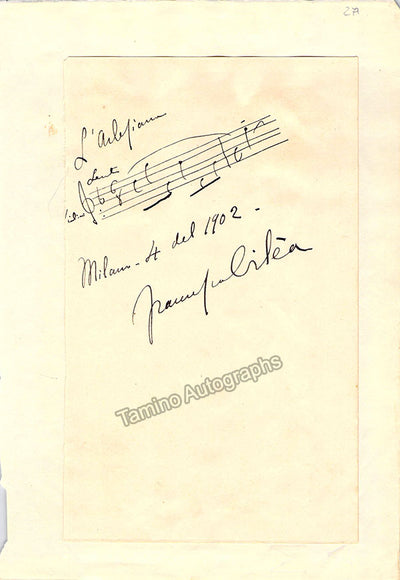 27
L'Arlesiana
Lento
Milano - 4 del 1902 -
Francesco Cilèa
Tamino Autographs